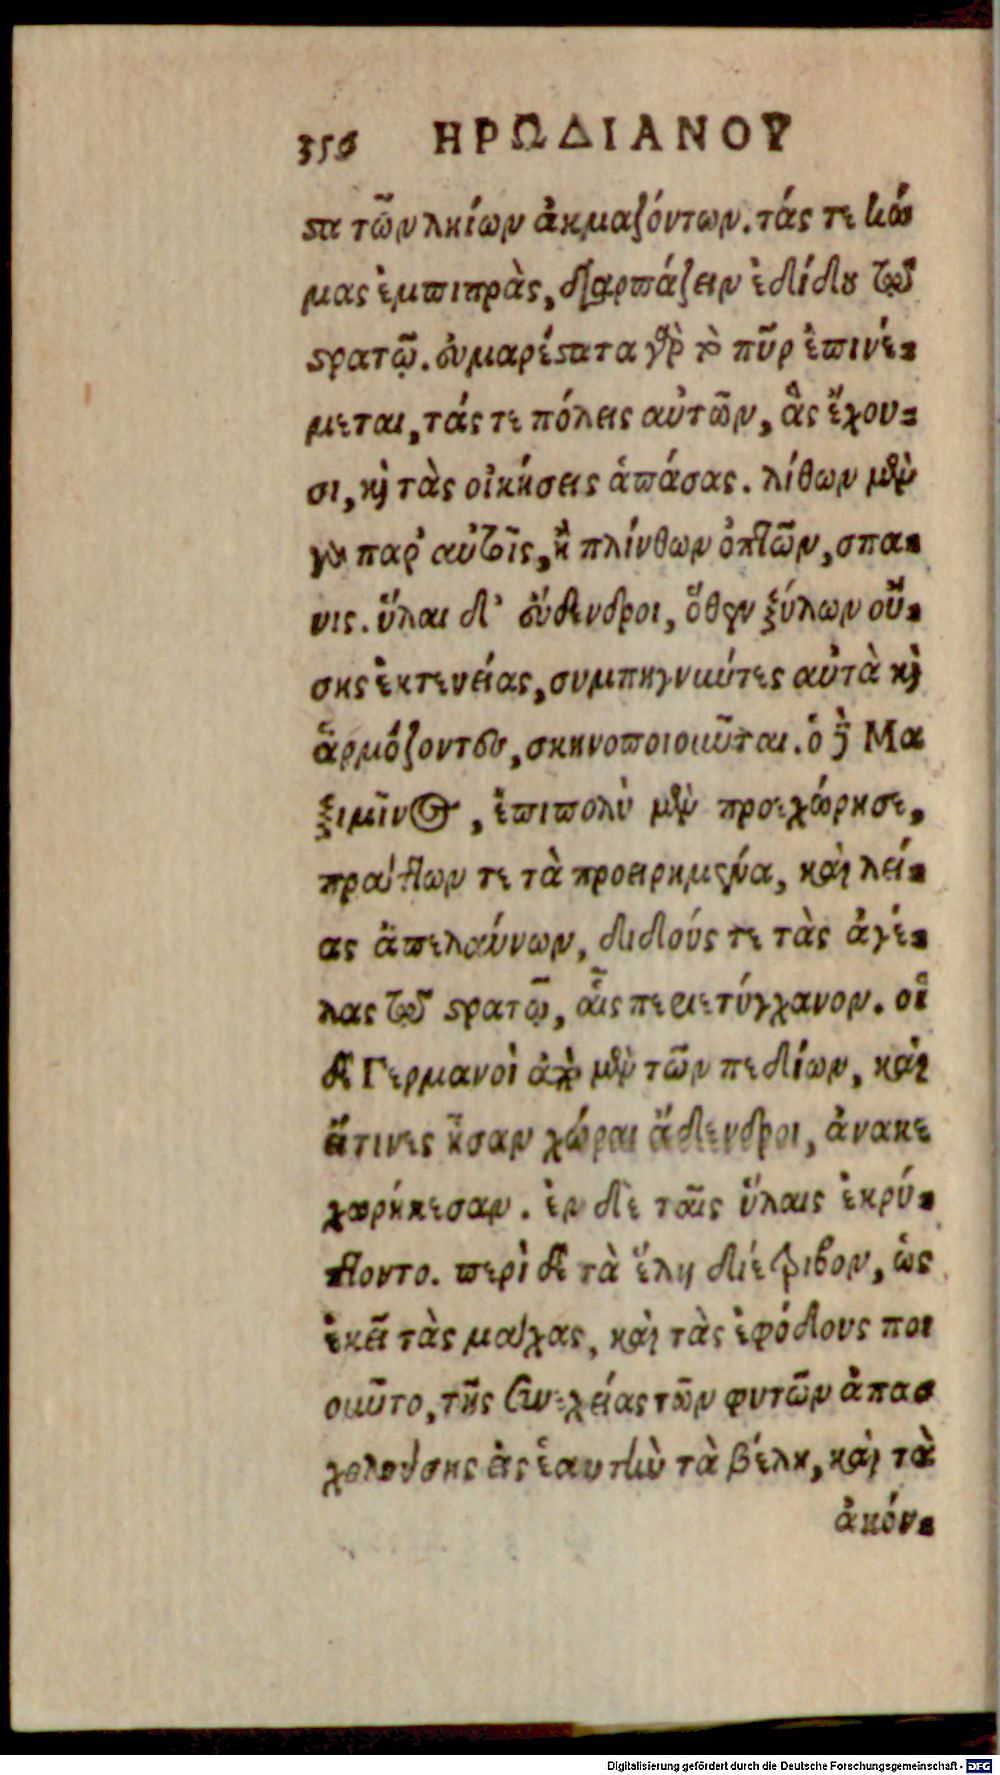 356 ΗΡΩΔΙΑΝΟΥ
στα τῶν ληίων ἀκμαζόντων. τάς τε κώ
μας ἐμπιπρὰς, διαρπάζειν ἐδίδου τῷ
στρατῷ. εὐμαρέστατα γὰρ τὸ πῦρ ἐπινέ-
μεται, τάς τε πόλεις αὐτῶν, ἃς ἔχου-
σι, καὶ τὰς οἰκήσεις ἁπάσας. λίθων μὲν
γὰρ παρ' αὐτοῖς, ἢ πλίνθων ὀπτῶν, σπά-
νις. ὕλαι δ' εὔδενδροι, ὅθεν ξύλων οὔ-
σης ἐκτενείας, συμπηγνύντες αὐτὰ καὶ
ἁρμόζοντες, σκηνοποιοῦνται. ὁ δὲ Μα
ξιμῖνος, ἐπιπολὺ μὲν προεχώρησε,
πράττων τε τὰ προειρημένα, καὶ λεί-
ας ἀπελαύνων, διδούς τε τὰς ἀγέ-
λας τῷ στρατῷ, αἷς περιετύγχανον. οἱ
δὲ Γερμανοὶ ἀπὸ μὲν τῶν πεδίων, καὶ
εἴτινες ἦσαν χώραι ἄδενδροι, ἀνακε
χωρήκεσαν. ἐν δὲ ταῖς ὕλαις ἐκρύ-
πτοντο. περὶ δὲ τὰ ἕλη διέτριβον, ὡς
ἐκεῖ τὰς μάχας, καὶ τὰς ἐφόδους ποι
οῦντο, τῆς συνεχείας τῶν φυτῶν ἀπασ
χολούσης εἰς ἑαυτὴν τὰ βέλη, καὶ τὰ
ἀκόν-
Digitalisierung gefördert durch die Deutsche Forschungsgemeinschaft - DFG